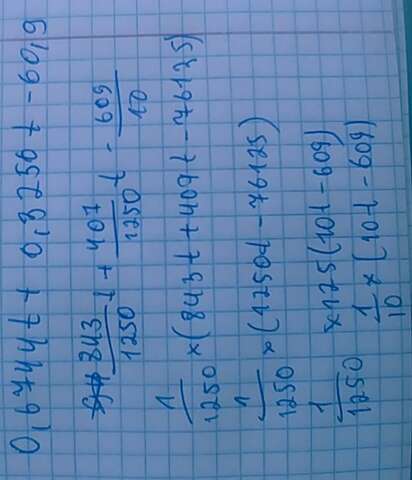 0,6744t + 0,3256t -60,9
843/1250 t + 407/1250 t - 609/10
1/1250 x(843t+407t-76125)
1/1250 x(1250t-76125)
1/1250 x125(10t-609)
1/10 x(10t-609)